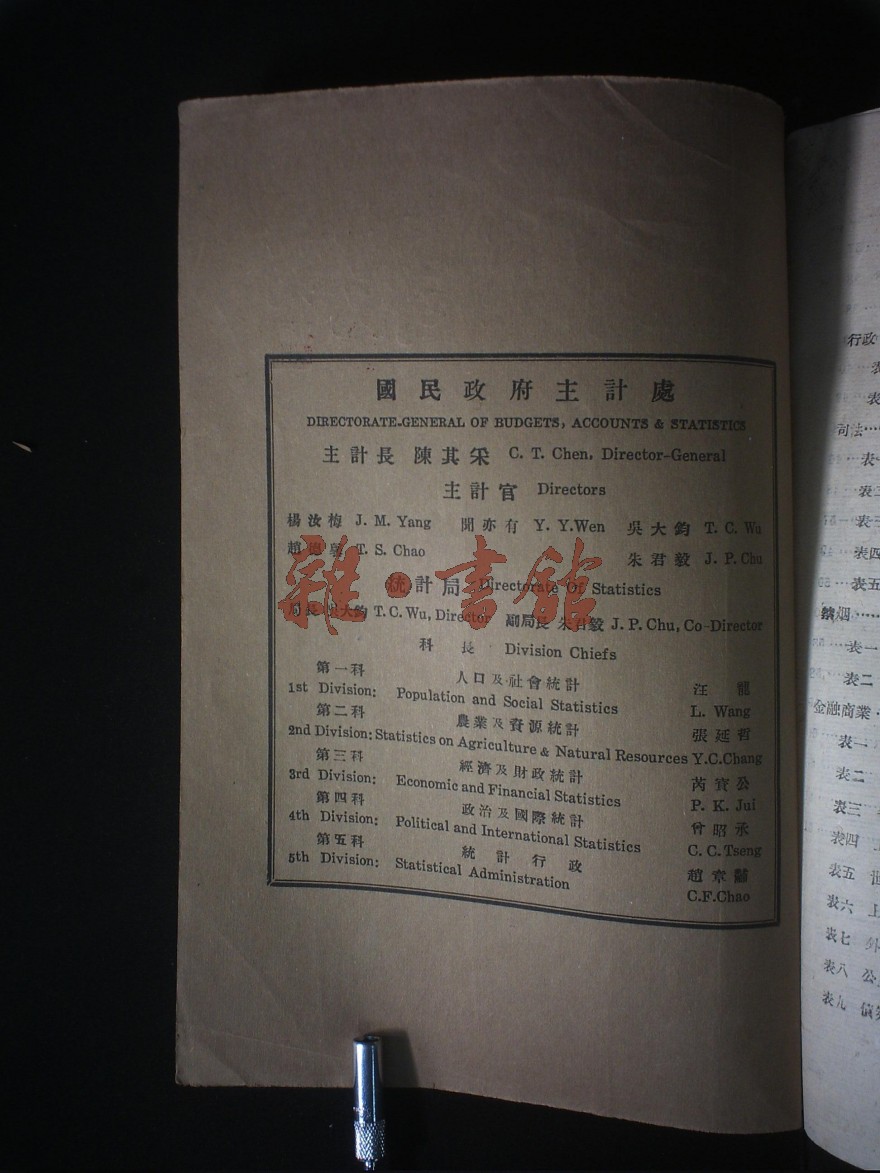 國民政府主計處
DIRECTORATE-GENERAL OF BUDGETS, ACCOUNTS & STATISTICS
主計長 陳其采 C. T. Chen, Director-General
主計官 Directors
楊汝梅 J. M. Yang 聞亦有 Y. Y. Wen 吳大鈞 T. C. Wu
趙 T. S. Chao 朱君毅 J. P. Chu
統計局 Directorate Of Statistics
局長 吳大鈞 T. C. Wu, Director 副局長 朱君毅 J. P. Chu, Co-Director
科長 Division Chiefs
第一科 人口及社會統計 汪龍
1st Division: Population and Social Statistics L. Wang
第二科 農業及資源統計 張延哲
2nd Division: Statistics on Agriculture & Natural Resources Y.C.Chang
第三科 經濟及財政統計 芮寶公
3rd Division: Economic and Financial Statistics P. K. Jui
第四科 政治及國際統計 曾昭承
4th Division: Political and International Statistics C. C. Tseng
第五科 統計行政 趙章黼
5th Division: Statistical Administration C.F.Chao
雜·書館
行政
表
表
司法……
表
表二
表三
表四
表五
禁烟……
表一
表二
金融商業
表一
表二
表三
表四
表五
表六 上
表七 外
表八 公
表九 債